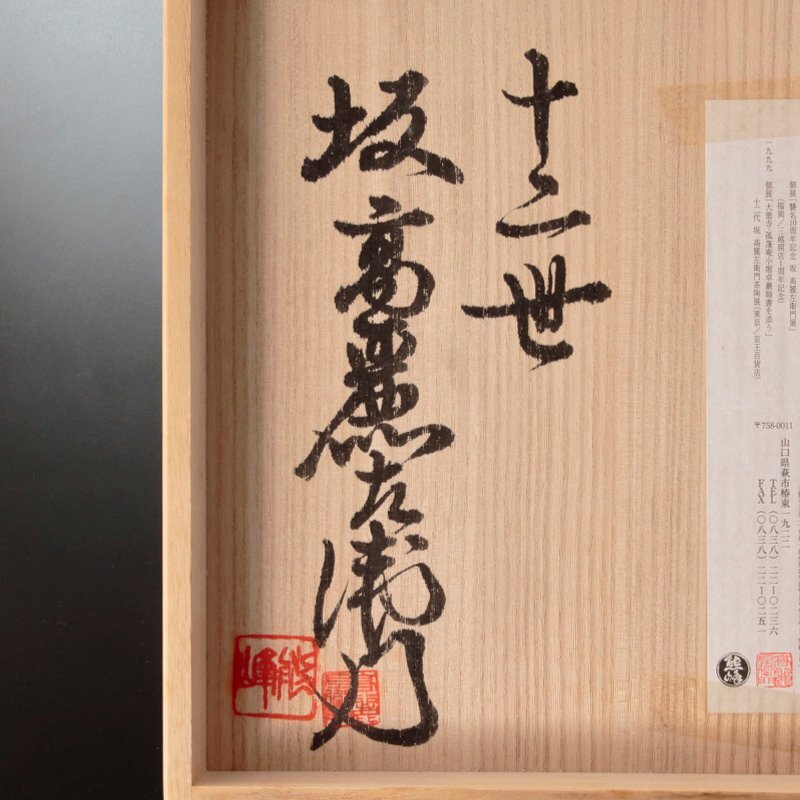 個展「襲名10周年記念 坂 高麗左衛門展」
(福岡/三越開店1周年記念)
一九九九 個展「大徳寺・孤篷庵小堀卓巌師書を添う」
十二代 坂 高麗左衛門茶陶展(東京/京王百貨店)
〒758-0011
山口県萩市椿東一九二二
TEL(〇八三八)二二-〇二三六
FAX(〇八三八)二二-〇二五一
熊峰
十二世
坂高麗左衛門
熊峰